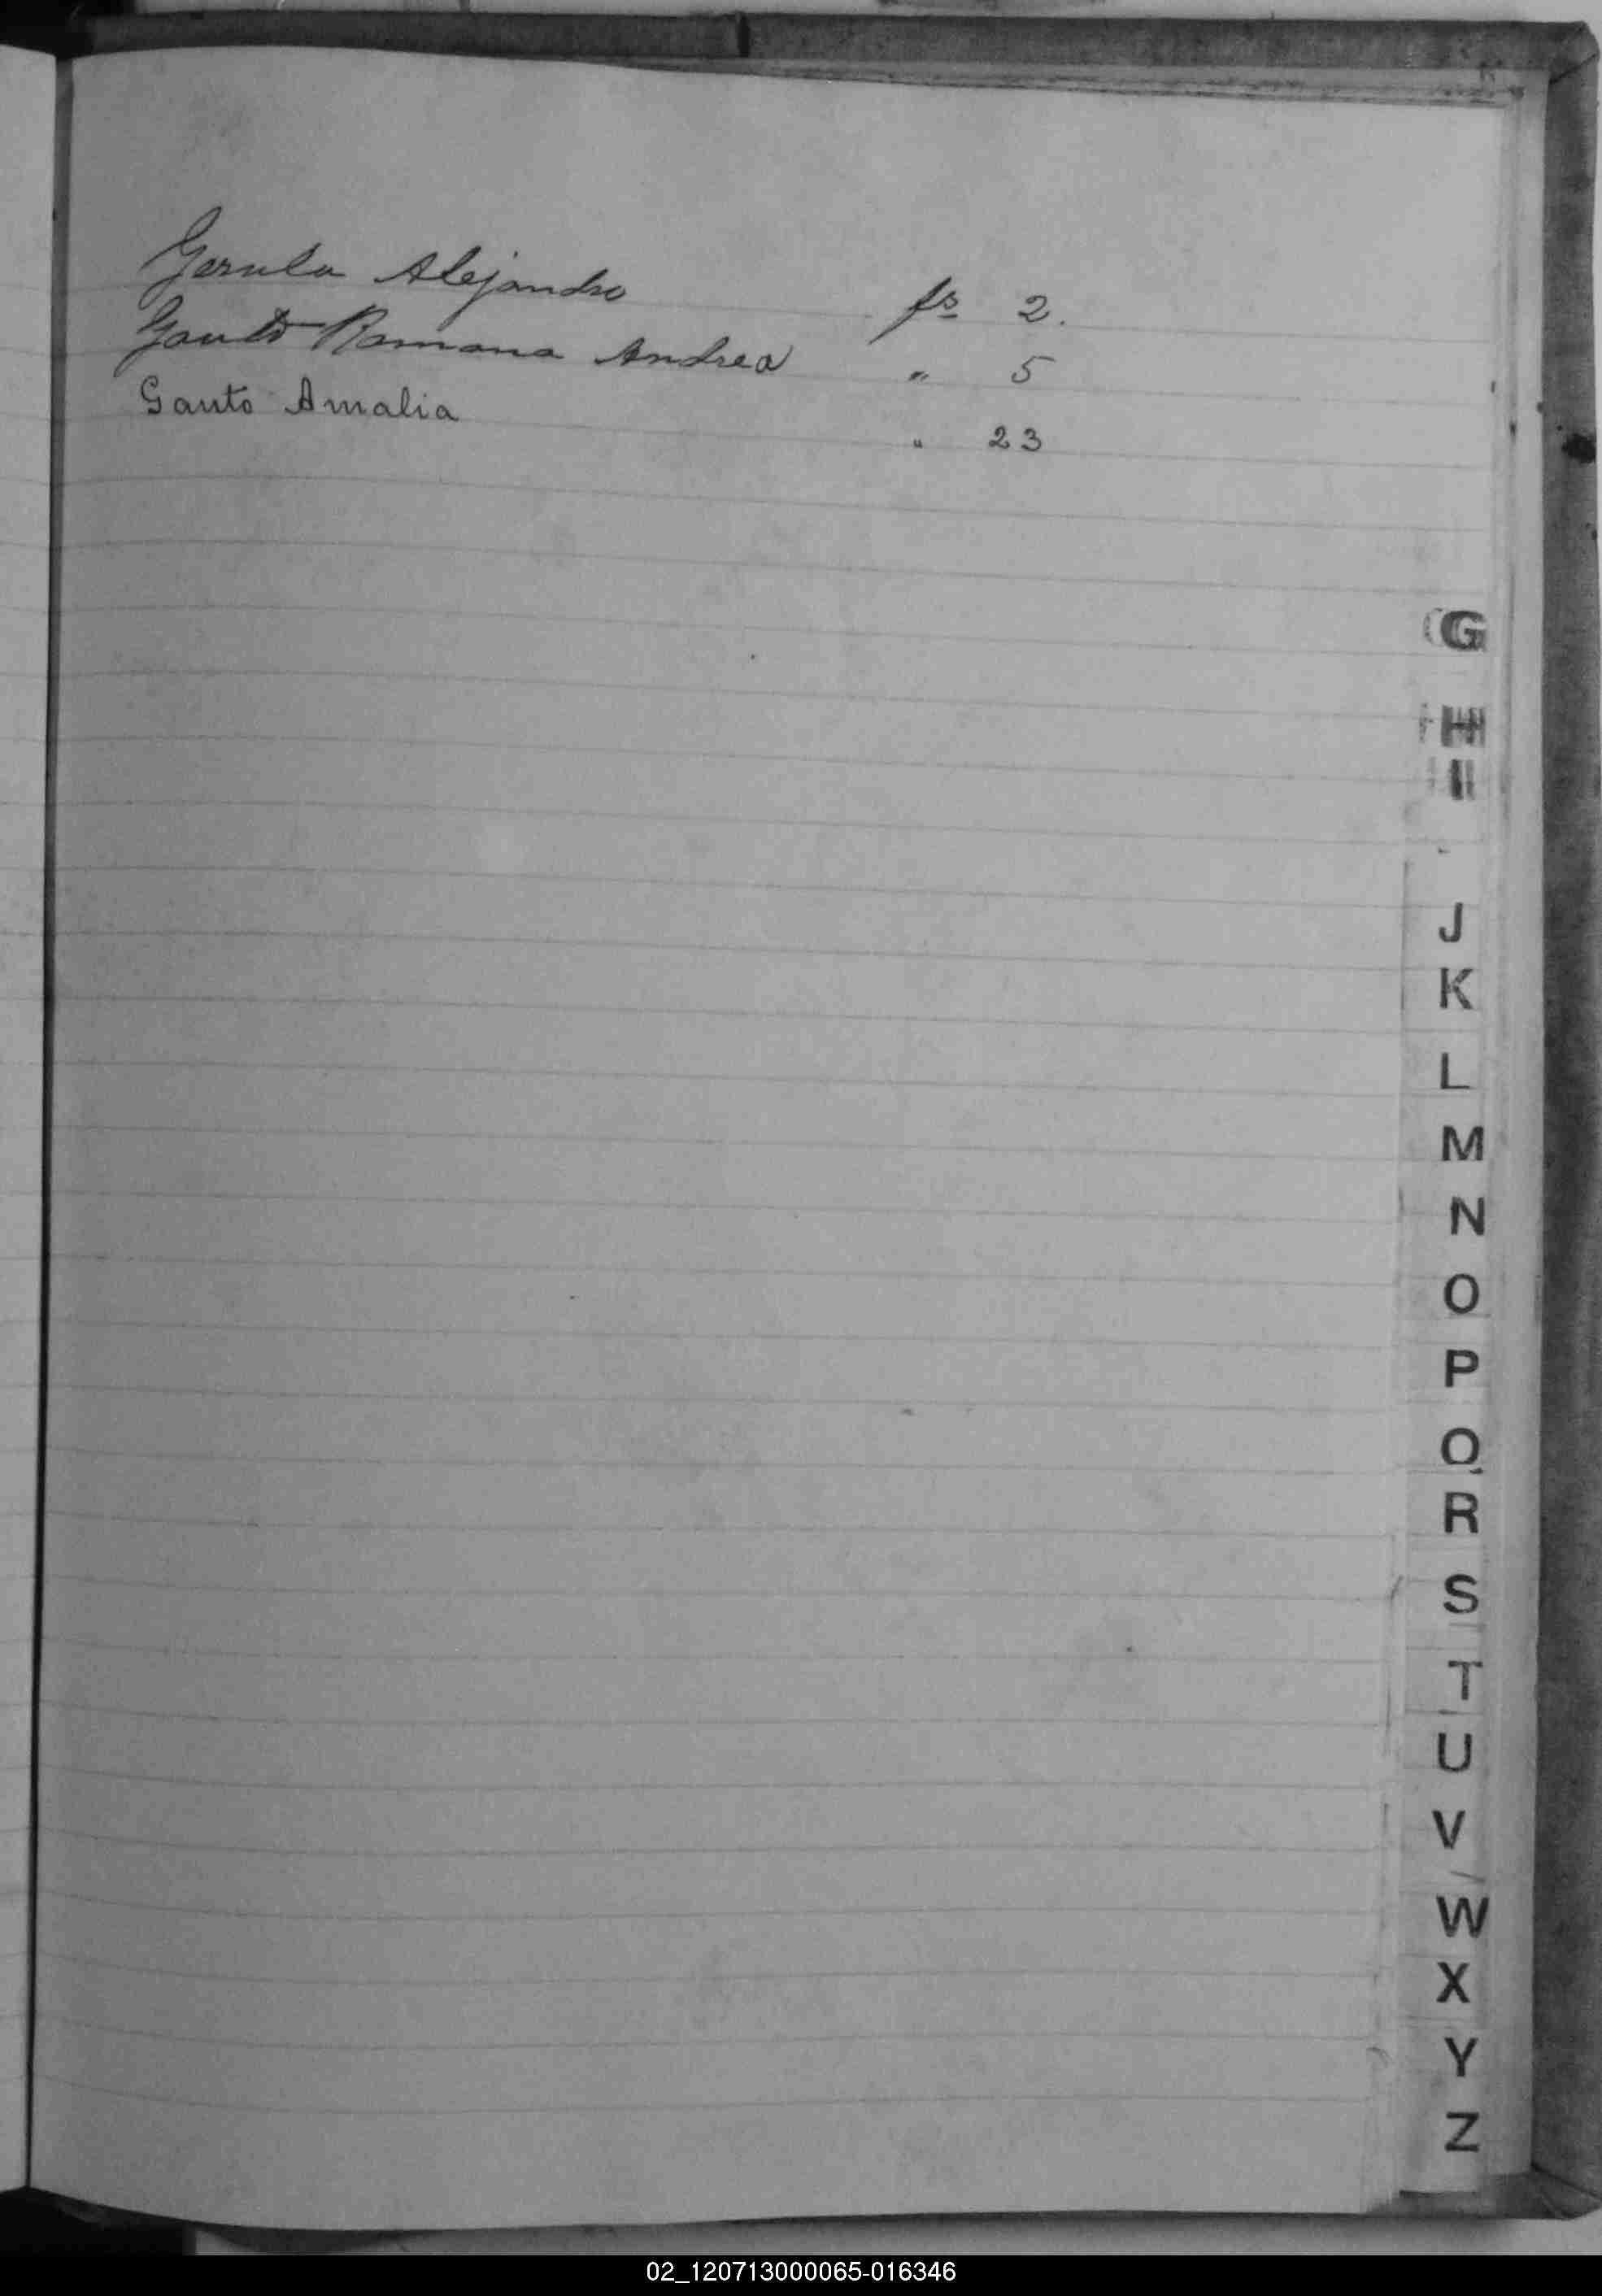 Gerula Alejandro fs 2.
Gauto Ramona Andrea " 5
Gauto Amalia " 23
G
H
I
J
K
L
M
N
O
P
Q
R
S
T
U
V
W
X
Y
Z
02_120713000065-016346